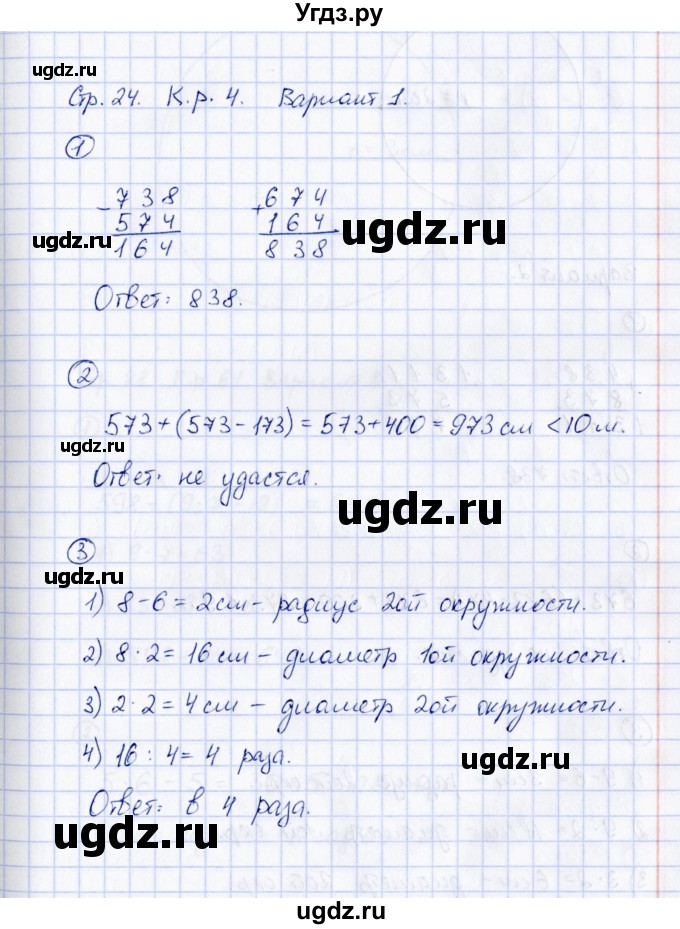 Угдз.ру
ugdz.ru
Стр. 24. К.р. 4. Вариант 1.
1
- 738
574
164
+ 674
164
838
ugdz.ru
ugdz.ru
Ответ: 838.
2
573+(573-173)=573+400=973см <10м.
ugdz.ru
Ответ: не удастся.
ugdz.ru
3
ugdz.ru
1) 8-6=2см- радиус 2ой окружности.
2) 8·2=16см- диаметр 1ой окружности.
3) 2·2=4см- диаметр 2ой окружности.
4) 16:4=4 раза.
ugdz.ru
Ответ: в 4 раза.
ugdz.ru
ugdz.ru